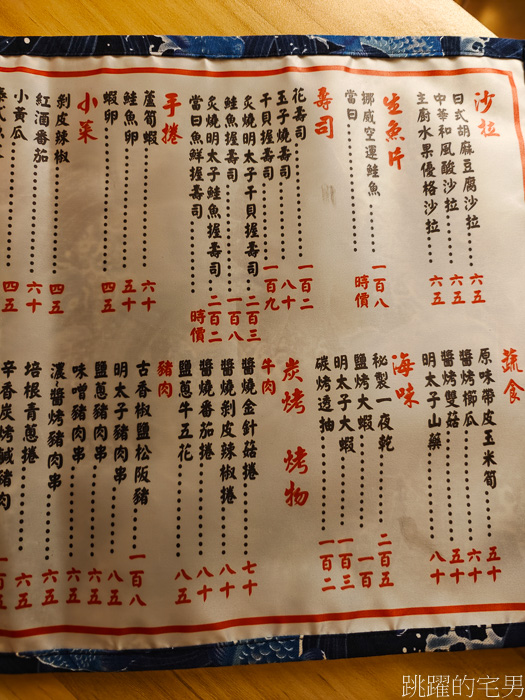 沙拉
日式胡麻豆腐沙拉 六五
中華和風酸沙拉 六五
主廚水果優格沙拉 六五
生魚片
挪威空運鮭魚 一百八
當日 時價
壽司
花壽司 一百二
玉子燒壽司 八十
干貝握壽司 一百九
炙燒明太子干貝握壽司 二百三
鮭魚握壽司 一百八
炙燒明太子鮭魚握壽司 二百二
當日魚鮮握壽司 時價
手捲
蘆筍蝦 六十
鮭魚卵 五十
蝦卵 四五
小菜
剝皮辣椒 四五
紅酒番茄 六十
小黃瓜 四五
蔬食
原味帶皮玉米筍 五十
醬烤櫛瓜 六五
醬烤雙菇 五十
明太子山藥 八十
海味
秘製一夜乾 二百五
鹽烤大蝦 一百
明太子大蝦 一百三
碳烤透抽 一百二
炭烤 烤物
牛肉
醬燒金針菇捲 七十
醬燒剝皮辣椒捲 八十
醬燒番茄捲 八十
鹽蔥牛五花 八五
豬肉
古香椒鹽松阪豬 一百八
明太子豬肉串 八五
鹽蔥豬肉串 六五
味噌豬肉串 六五
濃醬烤豬肉串 六五
培根青蔥捲 六五
辛香炭烤鹹豬肉 一百五
跳躍的宅男